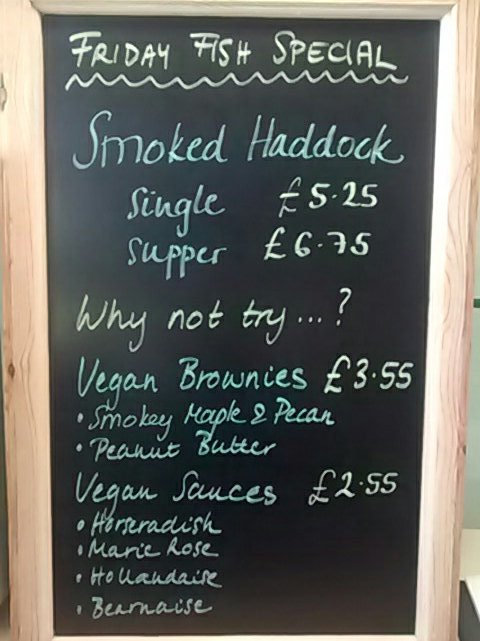 FRIDAY FISH SPECIAL
Smoked Haddock
Single £5.25
Supper £6.75
Why not try...?
Vegan Brownies £3.55
• Smokey Maple & Pecan
• Peanut Butter
Vegan Sauces £2.55
• Horseradish
• Marie Rose
• Hollandaise
• Bearnaise